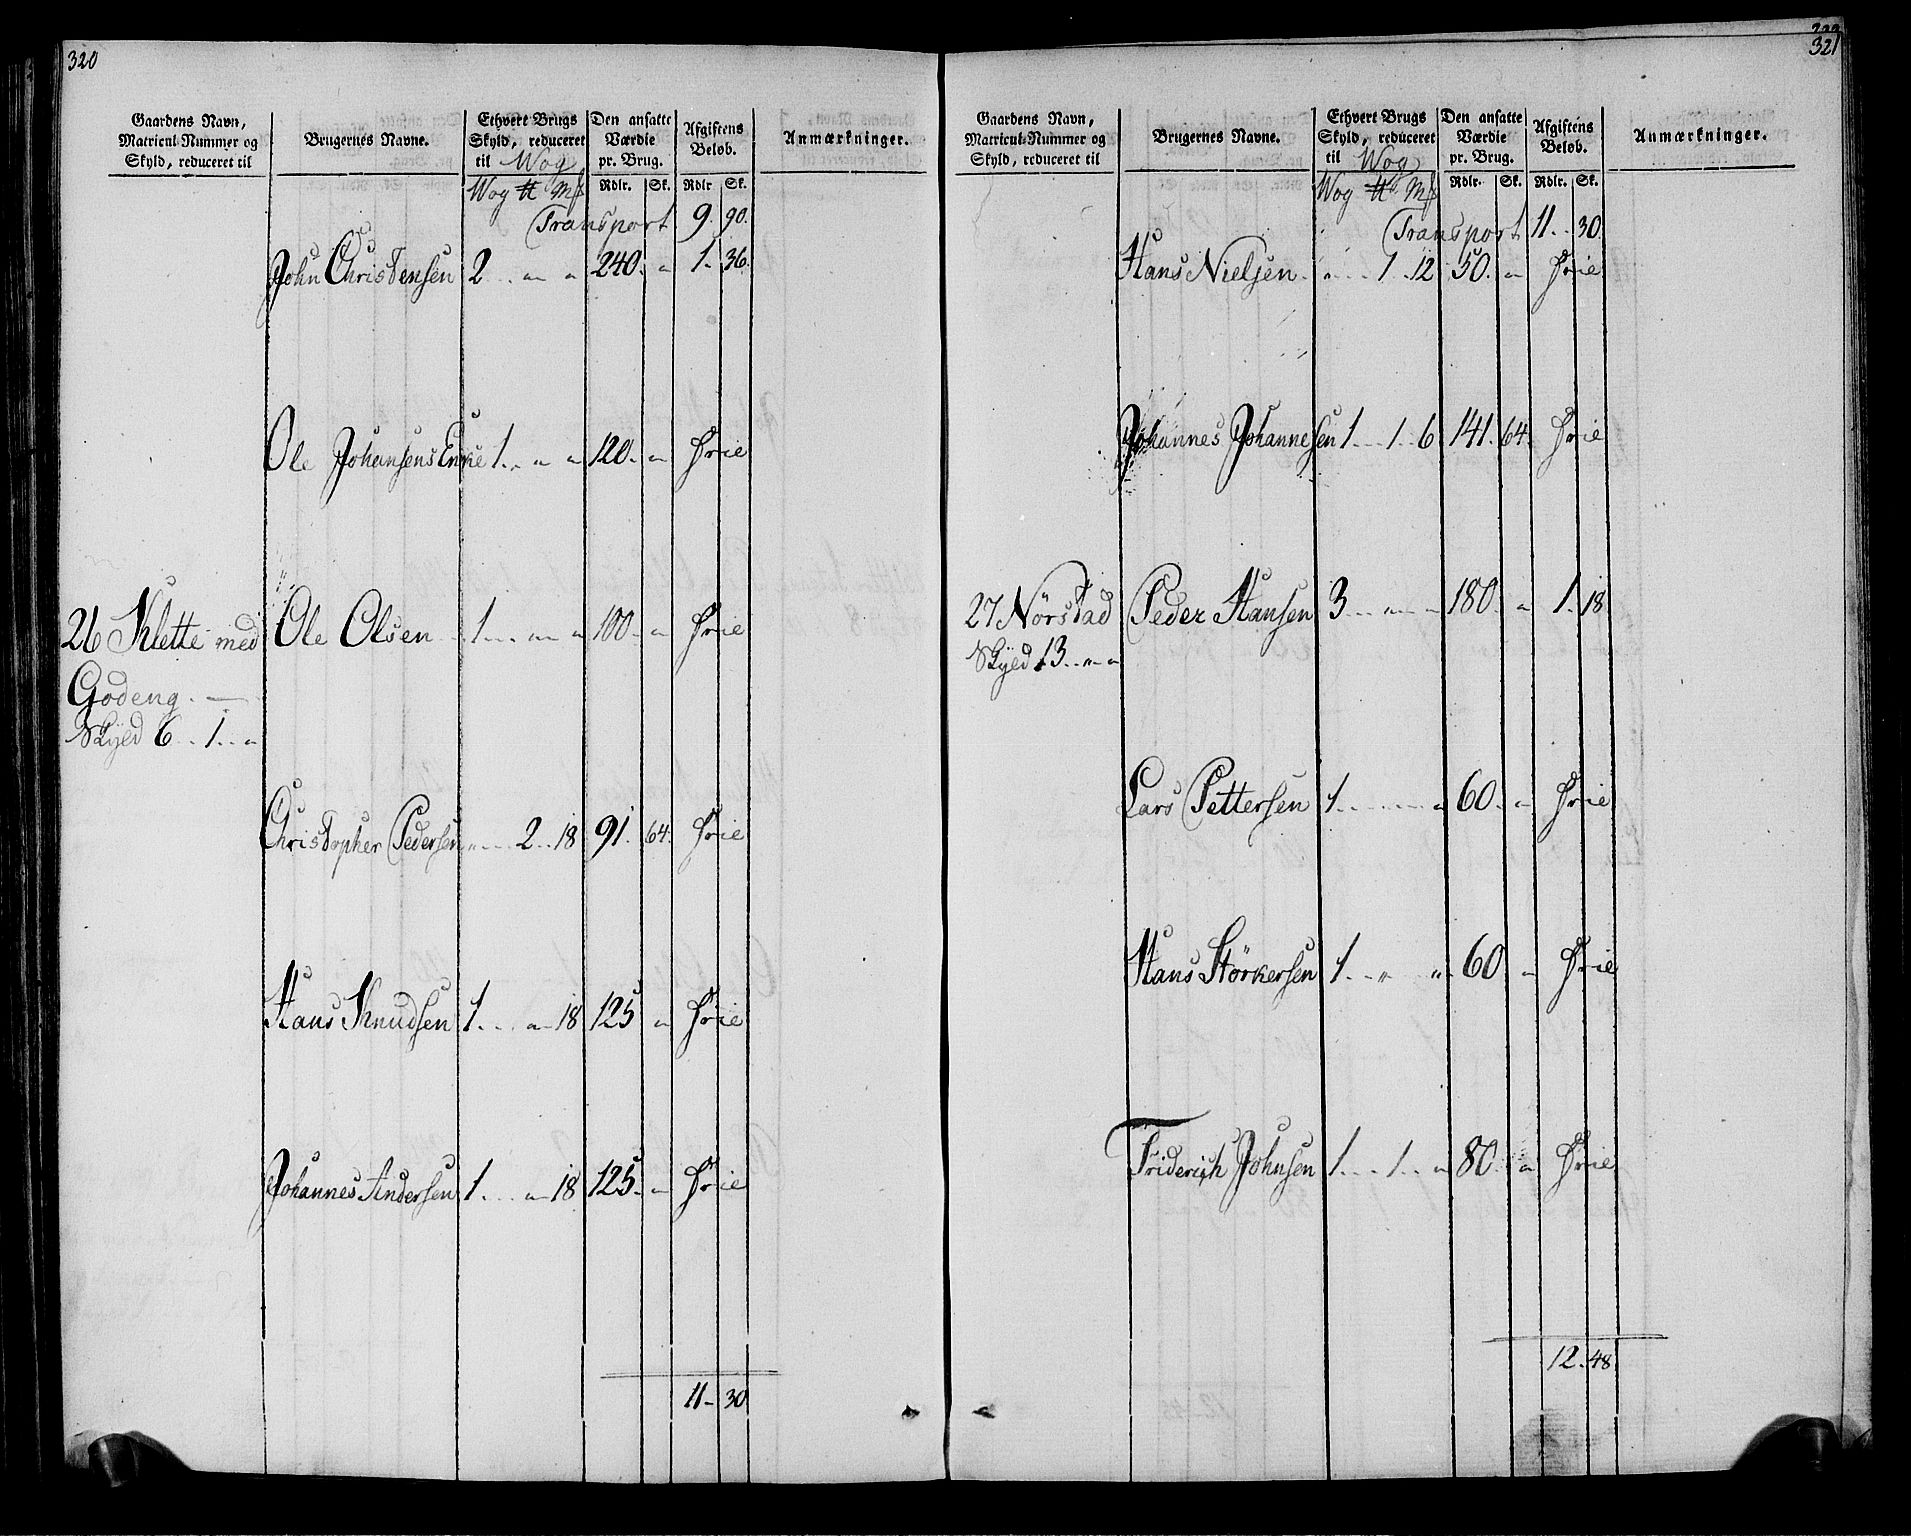 320
Gaardens Navn, Matricul-Nummer og Skyld, reduceret til
Brugernes Navne.
Ethvert Brugs Skyld, reduceret til Wog
Den ansatte Værdie pr. Brug.
Afgiftens Beløb.
Anmærkninger.
Wog ℔ Mk Rdlr. Sk. Rdlr Sk.
Transport 9. 90.
John Christensen 2 .. „ „ 240. „ 1. 36.
Ole Johansens Enke 1 .. „ „ 120. „ Frie
26 Klette med Ole Olsen 1 .. „ „ 100. „ Frie
Godeng. —
Skyld 6 .. 1 .. „
Christopher Pedersen „ .. 2 .. 18 91. 64. Frie
Hans Knudsen 1 .. „ 18 125 „ Frie
Johannes Andersen 1 .. „ 18 125. „ Frie
11 - 30
321
Gaardens Navn, Matricul-Nummer og Skyld, reduceret til
Brugernes Navne.
Ethvert Brugs Skyld, reduceret til Wog
Den ansatte Værdie pr. Brug.
Afgiftens Beløb.
Anmærkninger.
Wog ℔ Mk Rdlr. Sk. Rdlr. Sk.
Transport 11 .. 30.
Hans Nielsen „ .. 1 .. 12 50. „ Frie
Johannes Johannesen 1 .. 1 .. 6 141. 64. Frie
27 Nörstad Peder Hansen 3 .. „ „ 180. „ 1. 18
Skyld 13 .. „ „
Lars Pettersen 1 .. „ „ 60. „ Frie
Hans Störkersen 1 .. „ „ 60 „ Frie
Friderich Johnsen 1 .. 1 .. „ 80. „ Frie
12. 48.